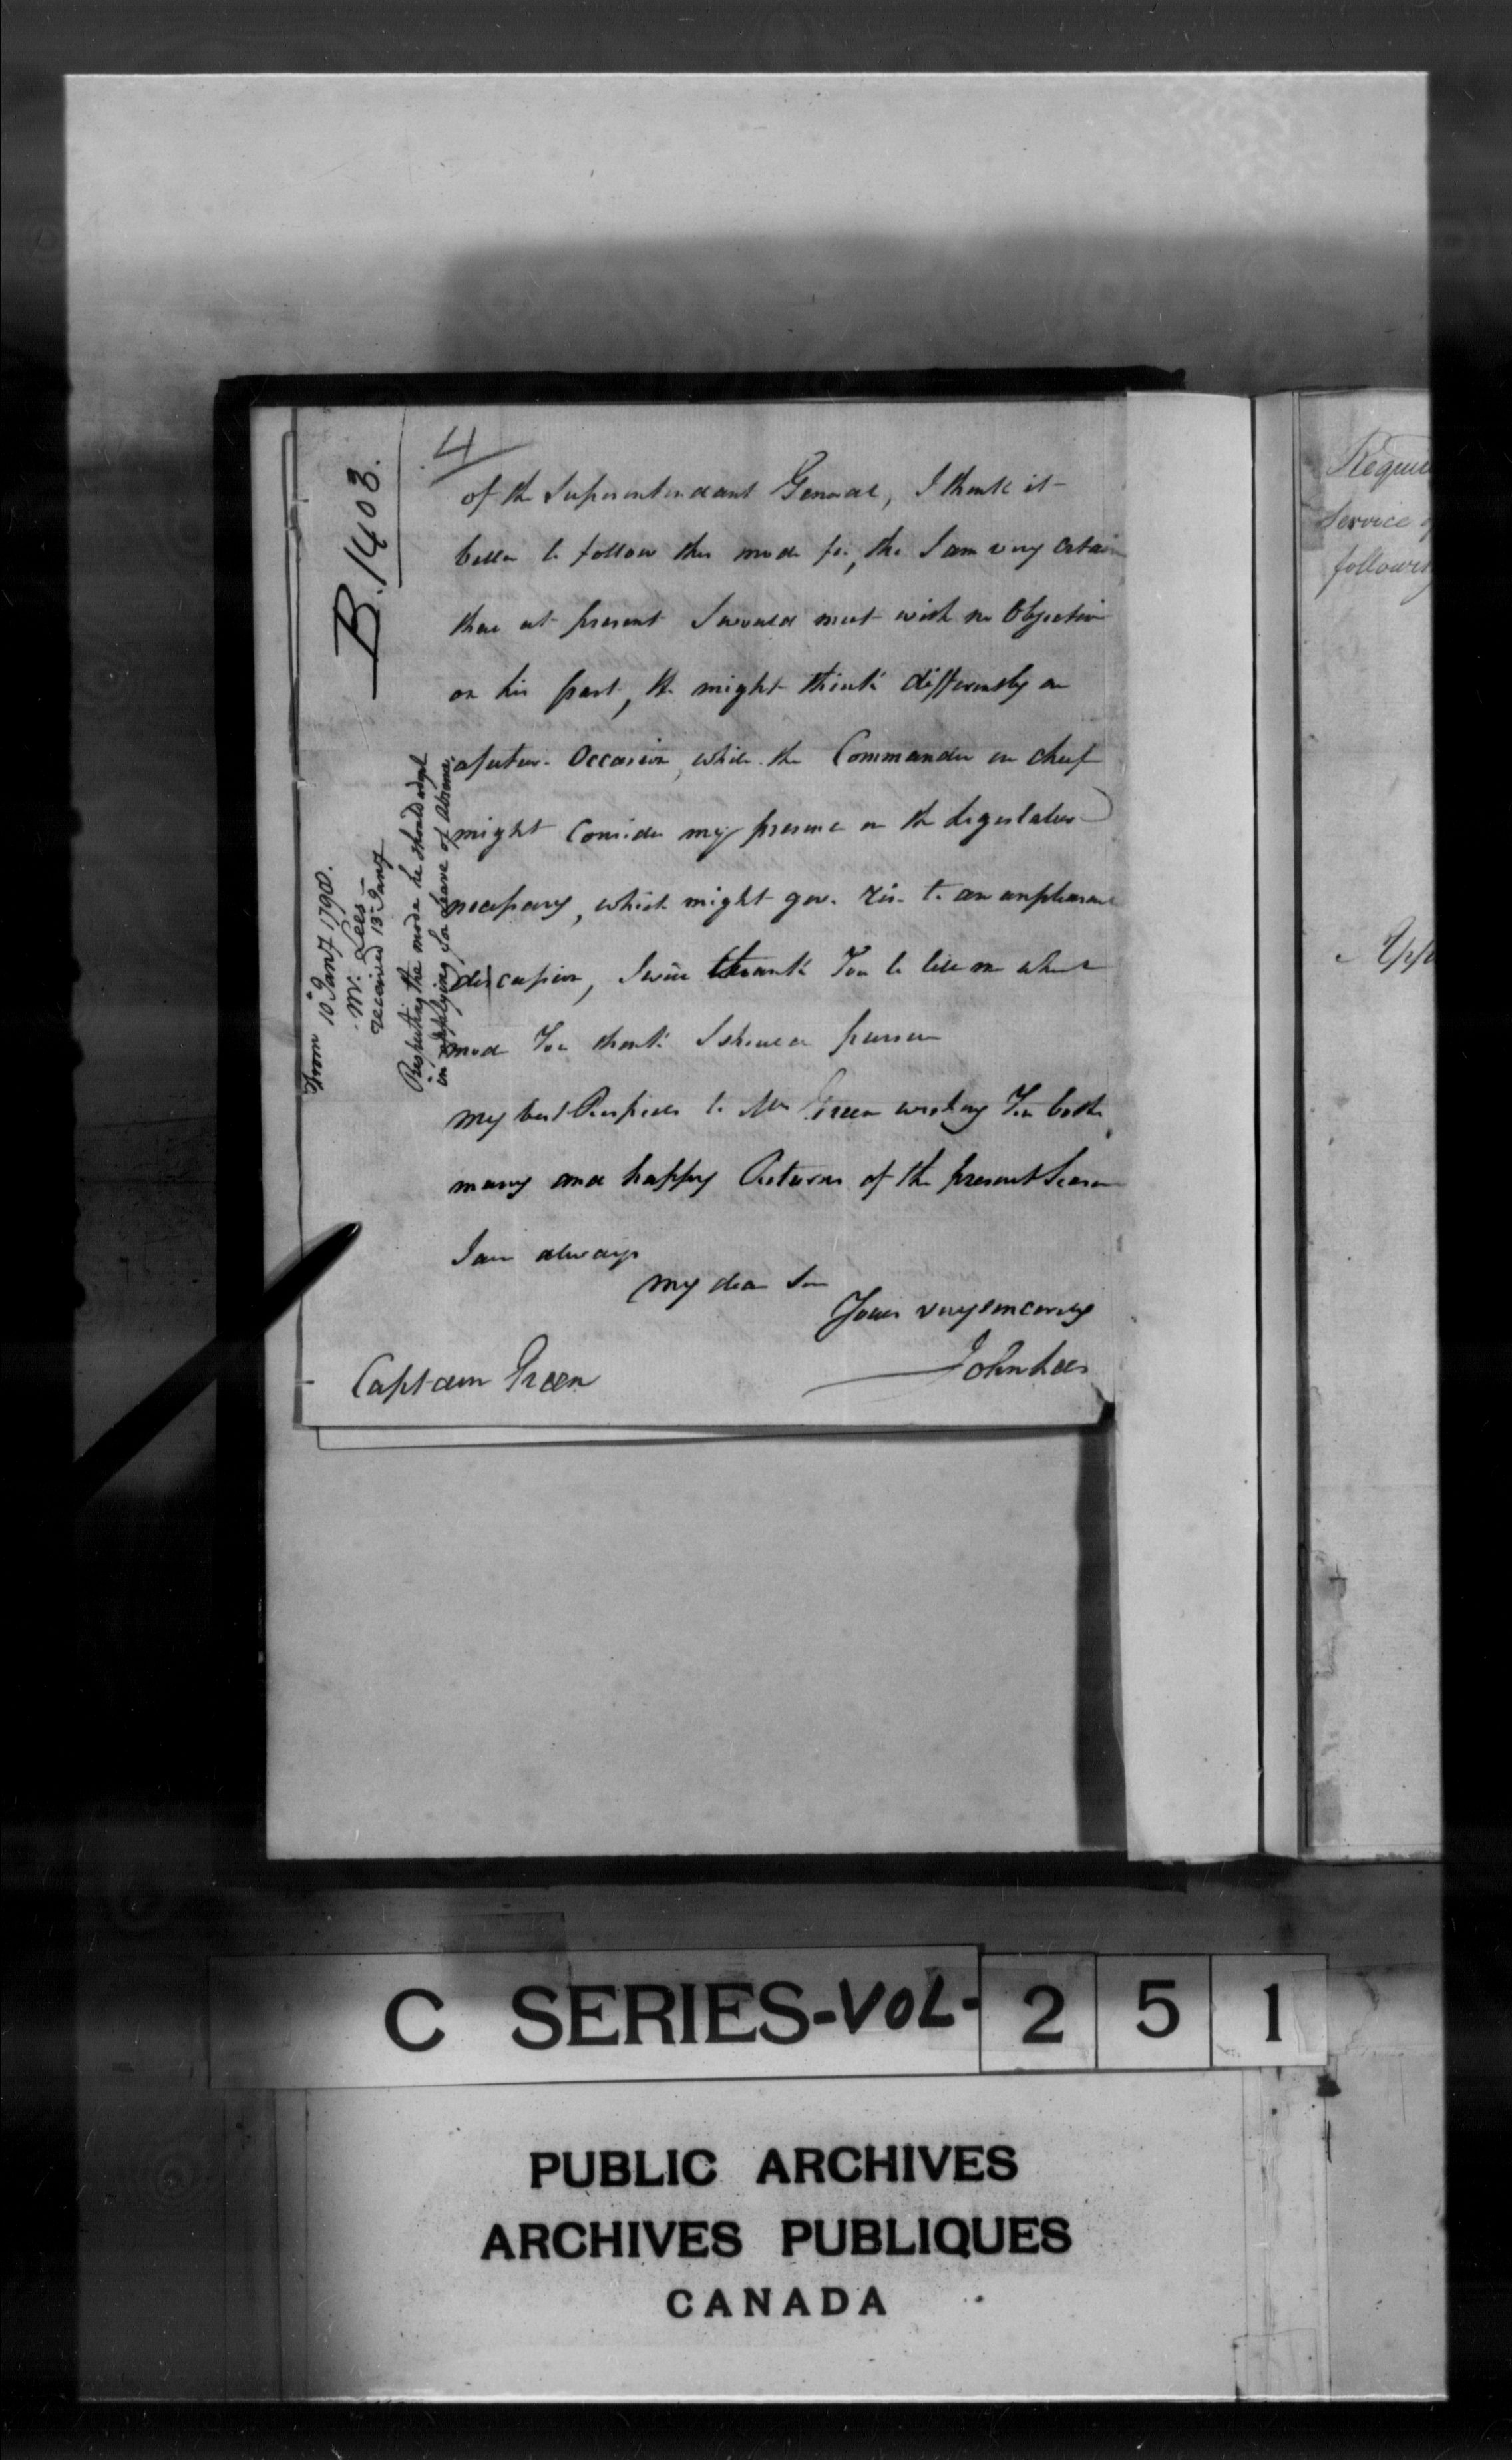 4
B.1403.
of the Superintendant General, I think it
better to follow this mode for, tho I am very certain
that at present I would meet with no Objection
on his part, He might think differently on
a future Occasion, while the Commander in cheif
might Consider my presence in the Legislature
necessary, which might give rise to an unpleasant
discussion, I will thank You to tell me what
mode You think I should pursue
my best Respects to Mrs Green wishing You both
many and happy Returns of the present Season
I am always
my dear Sir
Yours very sincerely
John Lees
Captain Green
From 10th Jany 1798.
Mr. Lees
received 13th Jany
Respecting the mode he should adopt
in applying for Leave of Absence,
Requi
Service
follow
C SERIES-VOL-251
PUBLIC ARCHIVES
ARCHIVES PUBLIQUES
CANADA